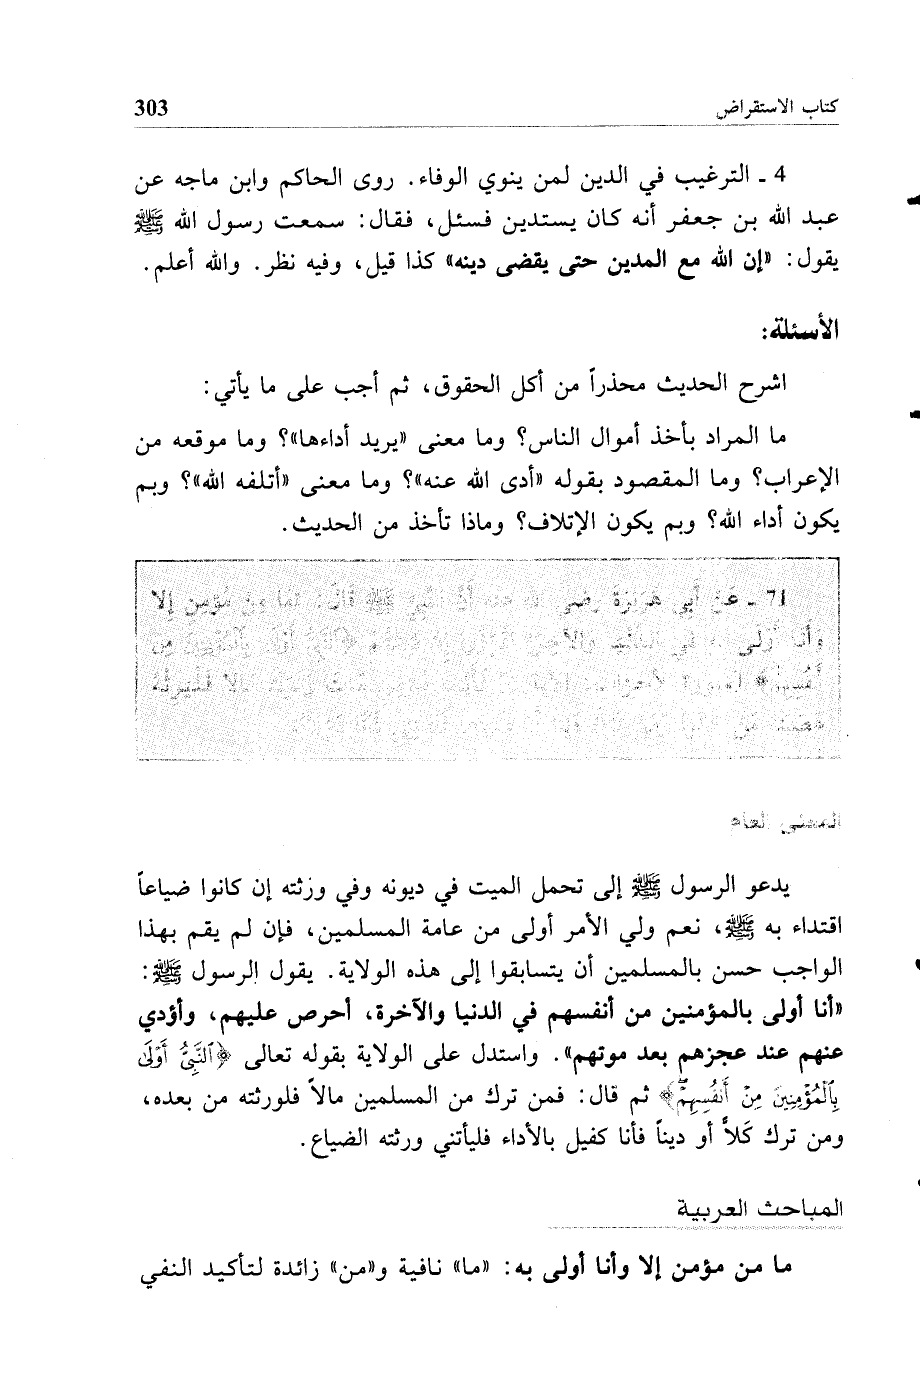 كتاب الاستقراض 303
4 ـ الترغيب في الدين لمن ينوي الوفاء. روى الحاكم وابن ماجه عن
عبد الله بن جعفر أنه كان يستدين فسئل، فقال: سمعت رسول الله ﷺ
يقول: «إن الله مع المدين حتى يقضى دينه» كذا قيل، وفيه نظر. والله أعلم.
الأسئلة:
اشرح الحديث محذراً من أكل الحقوق، ثم أجب على ما يأتي:
ما المراد بأخذ أموال الناس؟ وما معنى «يريد أداءها»؟ وما موقعه من
الإعراب؟ وما المقصود بقوله «أدى الله عنه»؟ وما معنى «أتلفه الله»؟ وبم
يكون أداء الله؟ وبم يكون الإتلاف؟ وماذا تأخذ من الحديث.
71 ـ عَنْ أَبِي هُرَيْرَةَ رضي الله عنه أَنَّ النَّبِيَّ ﷺ قَالَ: «مَا مِنْ مُؤْمِنٍ إِلا
وَأَنَا أَوْلَى
المعنى العام
يدعو الرسول ﷺ إلى تحمل الميت في ديونه وفي ورثته إن كانوا ضياعاً
اقتداء به ﷺ، نعم ولي الأمر أولى من عامة المسلمين، فإن لم يقم بهذا
الواجب حسن بالمسلمين أن يتسابقوا إلى هذه الولاية. يقول الرسول ﷺ:
«أنا أولى بالمؤمنين من أنفسهم في الدنيا والآخرة، أحرص عليهم، وأؤدي
عنهم عند عجزهم بعد موتهم». واستدل على الولاية بقوله تعالى ﴿ٱلنَّبِيُّ أَوْلَىٰ
بِٱلْمُؤْمِنِينَ مِنْ أَنفُسِهِمْ﴾ ثم قال: فمن ترك من المسلمين مالاً فلورثته من بعده،
ومن ترك كَلاًّ أو ديناً فأنا كفيل بالأداء فليأتني ورثته الضياع.
المباحث العربية
ما من مؤمن إلا وأنا أولى به: «ما» نافية و«من» زائدة لتأكيد النفي